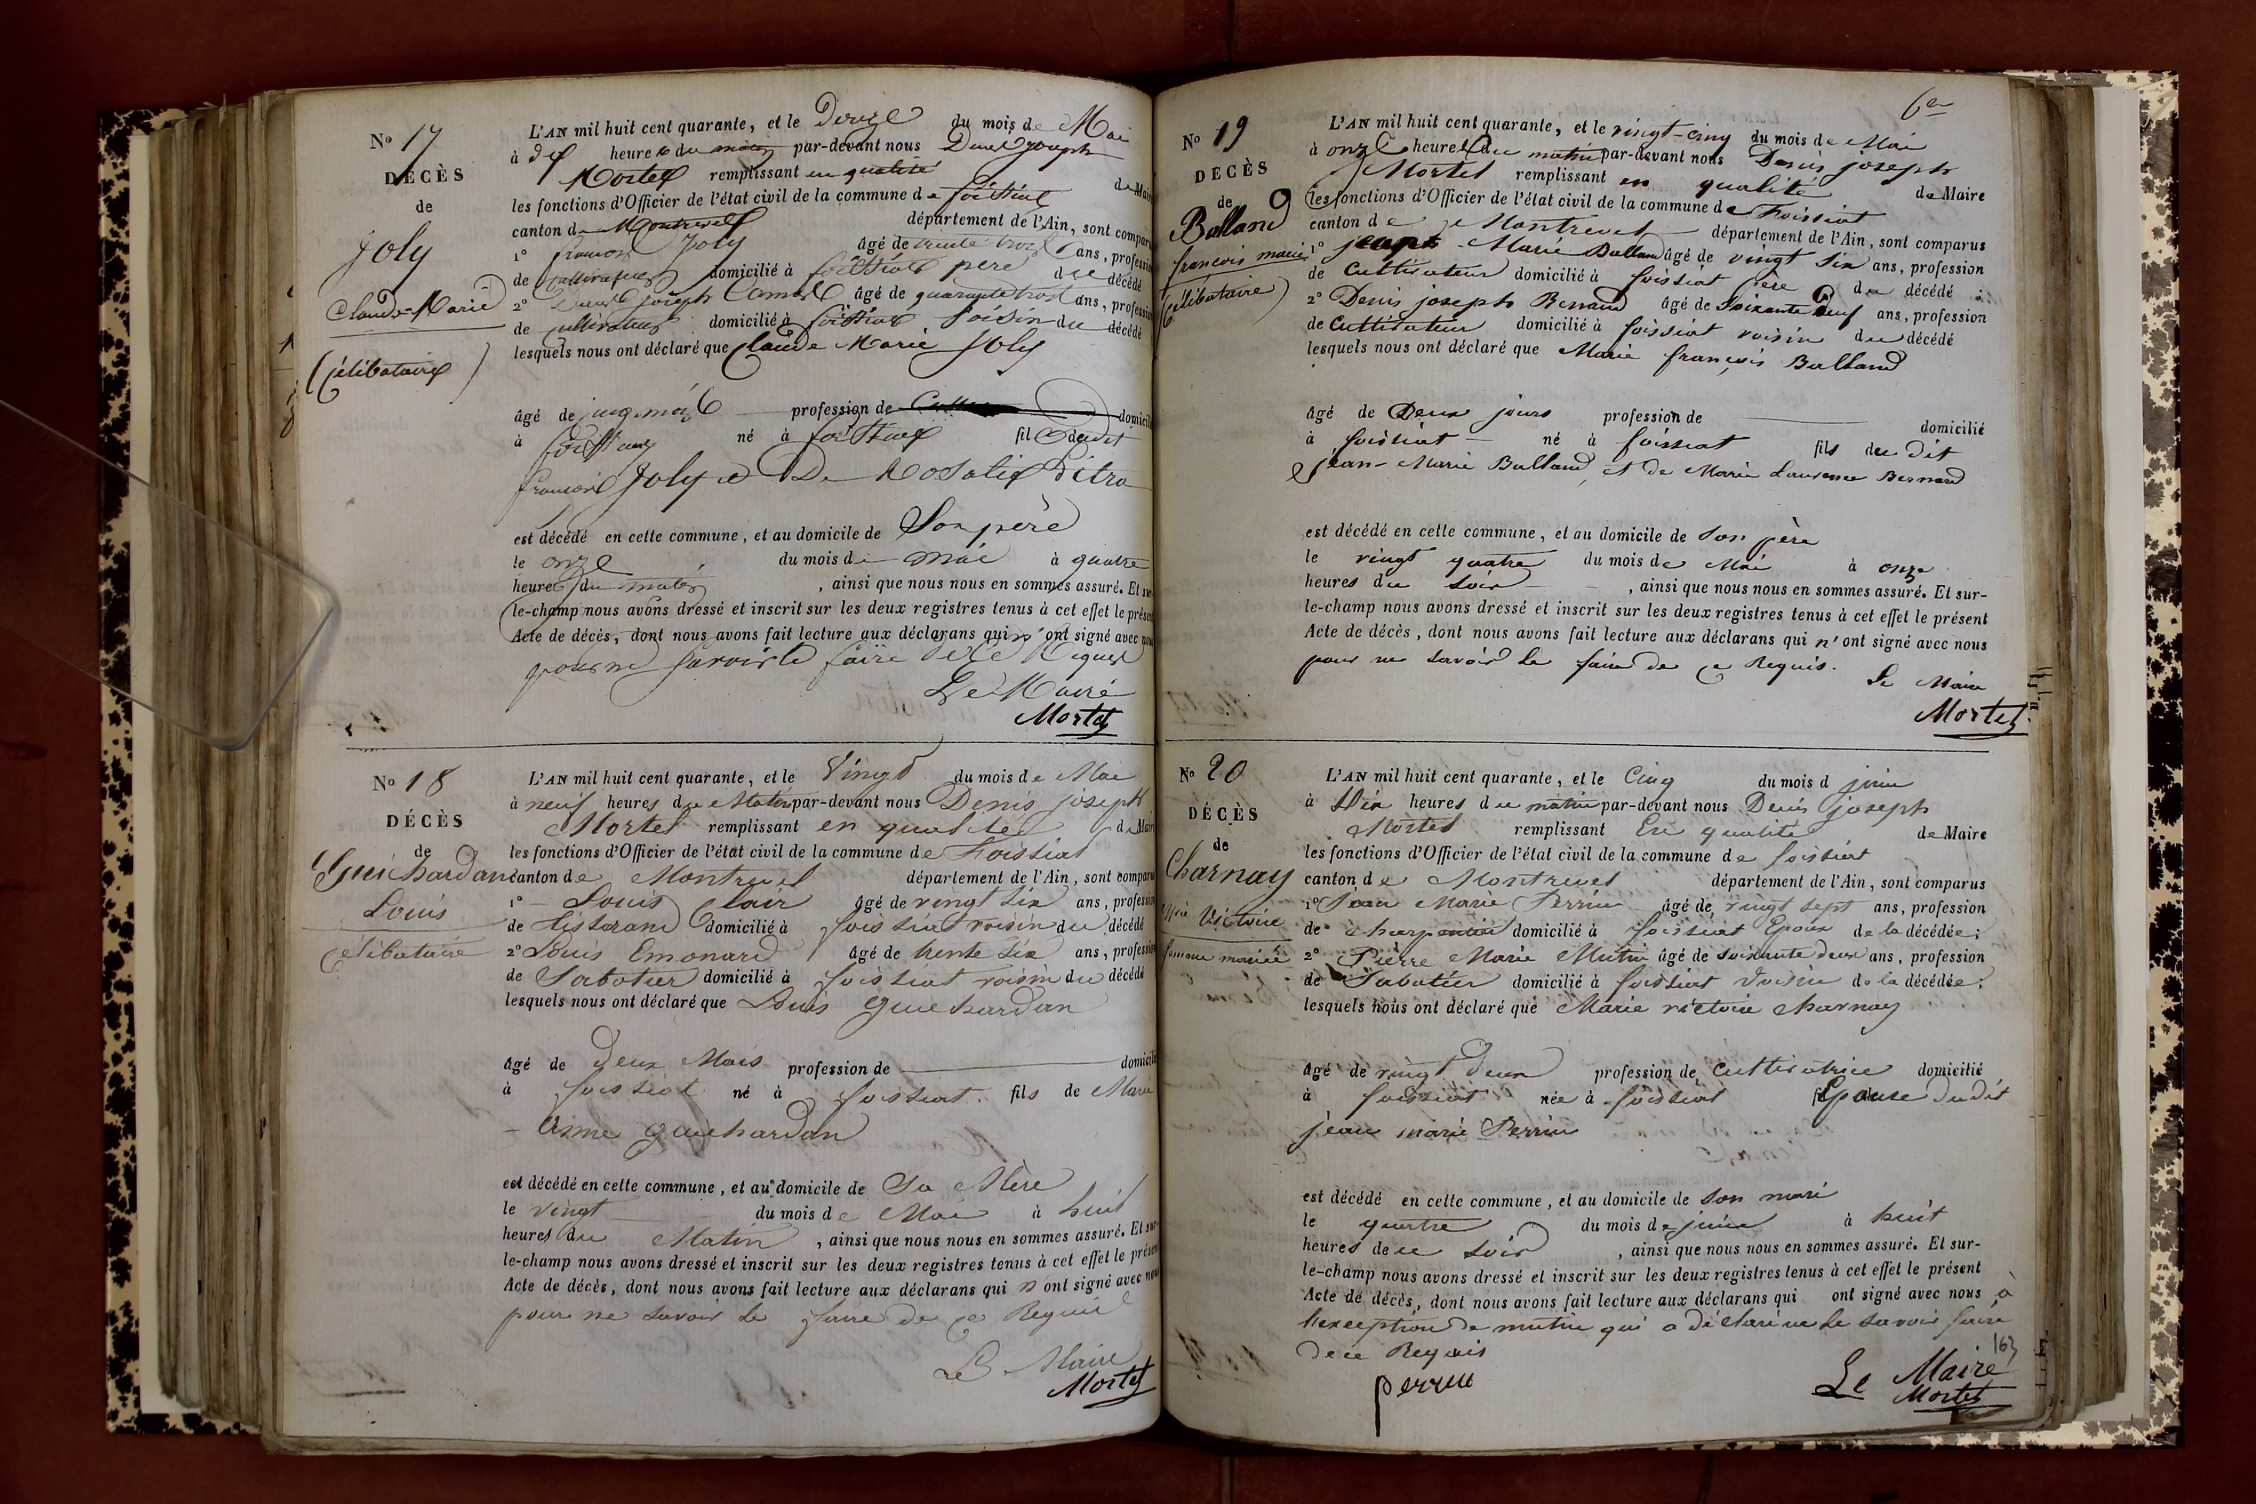 No 17
DÉCÈS
de
Joly
Claude-Marie
(célibataire)
L'AN mil huit cent quarante, et le Douze du mois de Mai
à dix heures du matin par-devant nous Denis Joseph
Mortel remplissant en qualité de Maire
les fonctions d'Officier de l'état civil de la commune de foissiat
canton de Montrevel département de l'Ain, sont comparus
1° françois Joly âgé de trente trois ans, profession
de cultivateur domicilié à foissiat père du décédé
2° Denis joseph âgé de quarante trois ans, profession
de cultivateur domicilié à foissiat voisin du décédé
lesquels nous ont déclaré que Claude Marie Joly
âgé de cinq mois profession de domicilié
à foissiat né à foissiat fils dudit
françois Joly et De Rosalie Pitra
est décédé en cette commune, et au domicile de Son père
le onze du mois de mai à quatre
heures du matin, ainsi que nous nous en sommes assuré. Et sur-
le-champ nous avons dressé et inscrit sur les deux registres tenus à cet effet le présent
Acte de décès, dont nous avons fait lecture aux déclarans qui n'ont signé avec nous
pour ne savoir le faire de ce Requis
Le Maire
Mortel
No 18
DÉCÈS
de
Guichardan
Louis
célibataire
L'AN mil huit cent quarante, et le Vingt du mois de Mai
à neuf heures du Matin par-devant nous Denis joseph
Mortel remplissant en qualité de Maire
les fonctions d'Officier de l'état civil de la commune de Foissiat
canton de Montrevel département de l'Ain, sont comparus
1° Louis Clair âgé de vingt six ans, profession
de tisserand domicilié à foissiat voisin du décédé
2° Louis Emonard âgé de trente six ans, profession
de Sabotier domicilié à foissiat voisin du décédé
lesquels nous ont déclaré que Louis guichardan
âgé de deux Mois profession de domicilié
à foissiat né à foissiat fils de Marie
Anne guichardan
est décédé en cette commune, et au domicile de Sa Mère
le vingt du mois de Mai à huit
heures du Matin, ainsi que nous nous en sommes assuré. Et sur-
le-champ nous avons dressé et inscrit sur les deux registres tenus à cet effet le présent
Acte de décès, dont nous avons fait lecture aux déclarans qui n'ont signé avec nous
pour ne savoir le faire de ce Requis
Le Maire
Mortel
No 19
DÉCÈS
de
Balland
francois marie
(Célibataire)
L'AN mil huit cent quarante, et le vingt-cinq du mois de Mai
à onze heures du matin par-devant nous Denis joseph
Mortel remplissant en qualité de Maire
les fonctions d'Officier de l'état civil de la commune de Foissiat
canton de Montrevel département de l'Ain, sont comparus
1° jean-Marie Balland âgé de vingt six ans, profession
de Cultivateur domicilié à foissiat père du décédé
2° Denis joseph Renaud âgé de Soixante neuf ans, profession
de Cultivateur domicilié à foissiat voisin du décédé
lesquels nous ont déclaré que Marie françois Balland
âgé de Deux jours profession de domicilié
à foissiat né à foissiat fils du dit
jean-Marie Balland, et de Marie Laurence Bernard
est décédé en cette commune, et au domicile de son père
le vingt quatre du mois de Mai à onze
heures du Soir, ainsi que nous nous en sommes assuré. Et sur-
le-champ nous avons dressé et inscrit sur les deux registres tenus à cet effet le présent
Acte de décès, dont nous avons fait lecture aux déclarans qui n'ont signé avec nous
pour ne savoir le faire de ce Requis.
Le Maire
Mortel
No 20
DÉCÈS
de
Charnay
Victoire
femme mariée
L'AN mil huit cent quarante, et le Cinq du mois d juin
à Dix heures du matin par-devant nous Denis joseph
Mortel remplissant En qualité de Maire
les fonctions d'Officier de l'état civil de la commune de foissiat
canton de Montrevel département de l'Ain, sont comparus
1° Jean Marie Perrin âgé de vingt sept ans, profession
de charpentier domicilié à foissiat Epoux de la décédée;
2° Pierre Marie Mutin âgé de soixante deux ans, profession
de Sabotier domicilié à foissiat Voisin de la décédée;
lesquels nous ont déclaré que Marie victoire charnay
âgé de vingt deux profession de cultivatrice domicilié
à foissiat née à foissiat Epouse dudit
jean marie Perrin
est décédé en cette commune, et au domicile de son mari
le quatre du mois de juin à huit
heures du soir, ainsi que nous nous en sommes assuré. Et sur-
le-champ nous avons dressé et inscrit sur les deux registres tenus à cet effet le présent
Acte de décès, dont nous avons fait lecture aux déclarans qui ont signé avec nous à
l'exception de mutin qui a déclaré ne le savoir faire
de ce Requis
163
perrin
Le Maire
Mortel